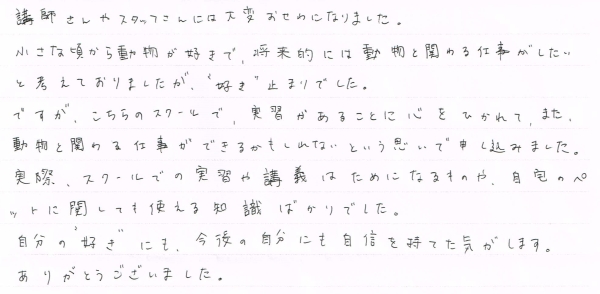 講師さんやスタッフさんには大変おせわになりました。
小さな頃から動物が好きで、将来的には動物と関わる仕事がしたい
と考えておりましたが、“好き”止まりでした。
ですが、こちらのスクールで、実習があることに心をひかれて、また、
動物と関わる仕事ができるかもしれないという思いで申し込みました。
実際、スクールでの実習や講義はためになるものや、自宅のペ
ットに関しても使える知識ばかりでした。
自分の“好き”にも、今後の自分にも自信を持てた気がします。
ありがとうございました。